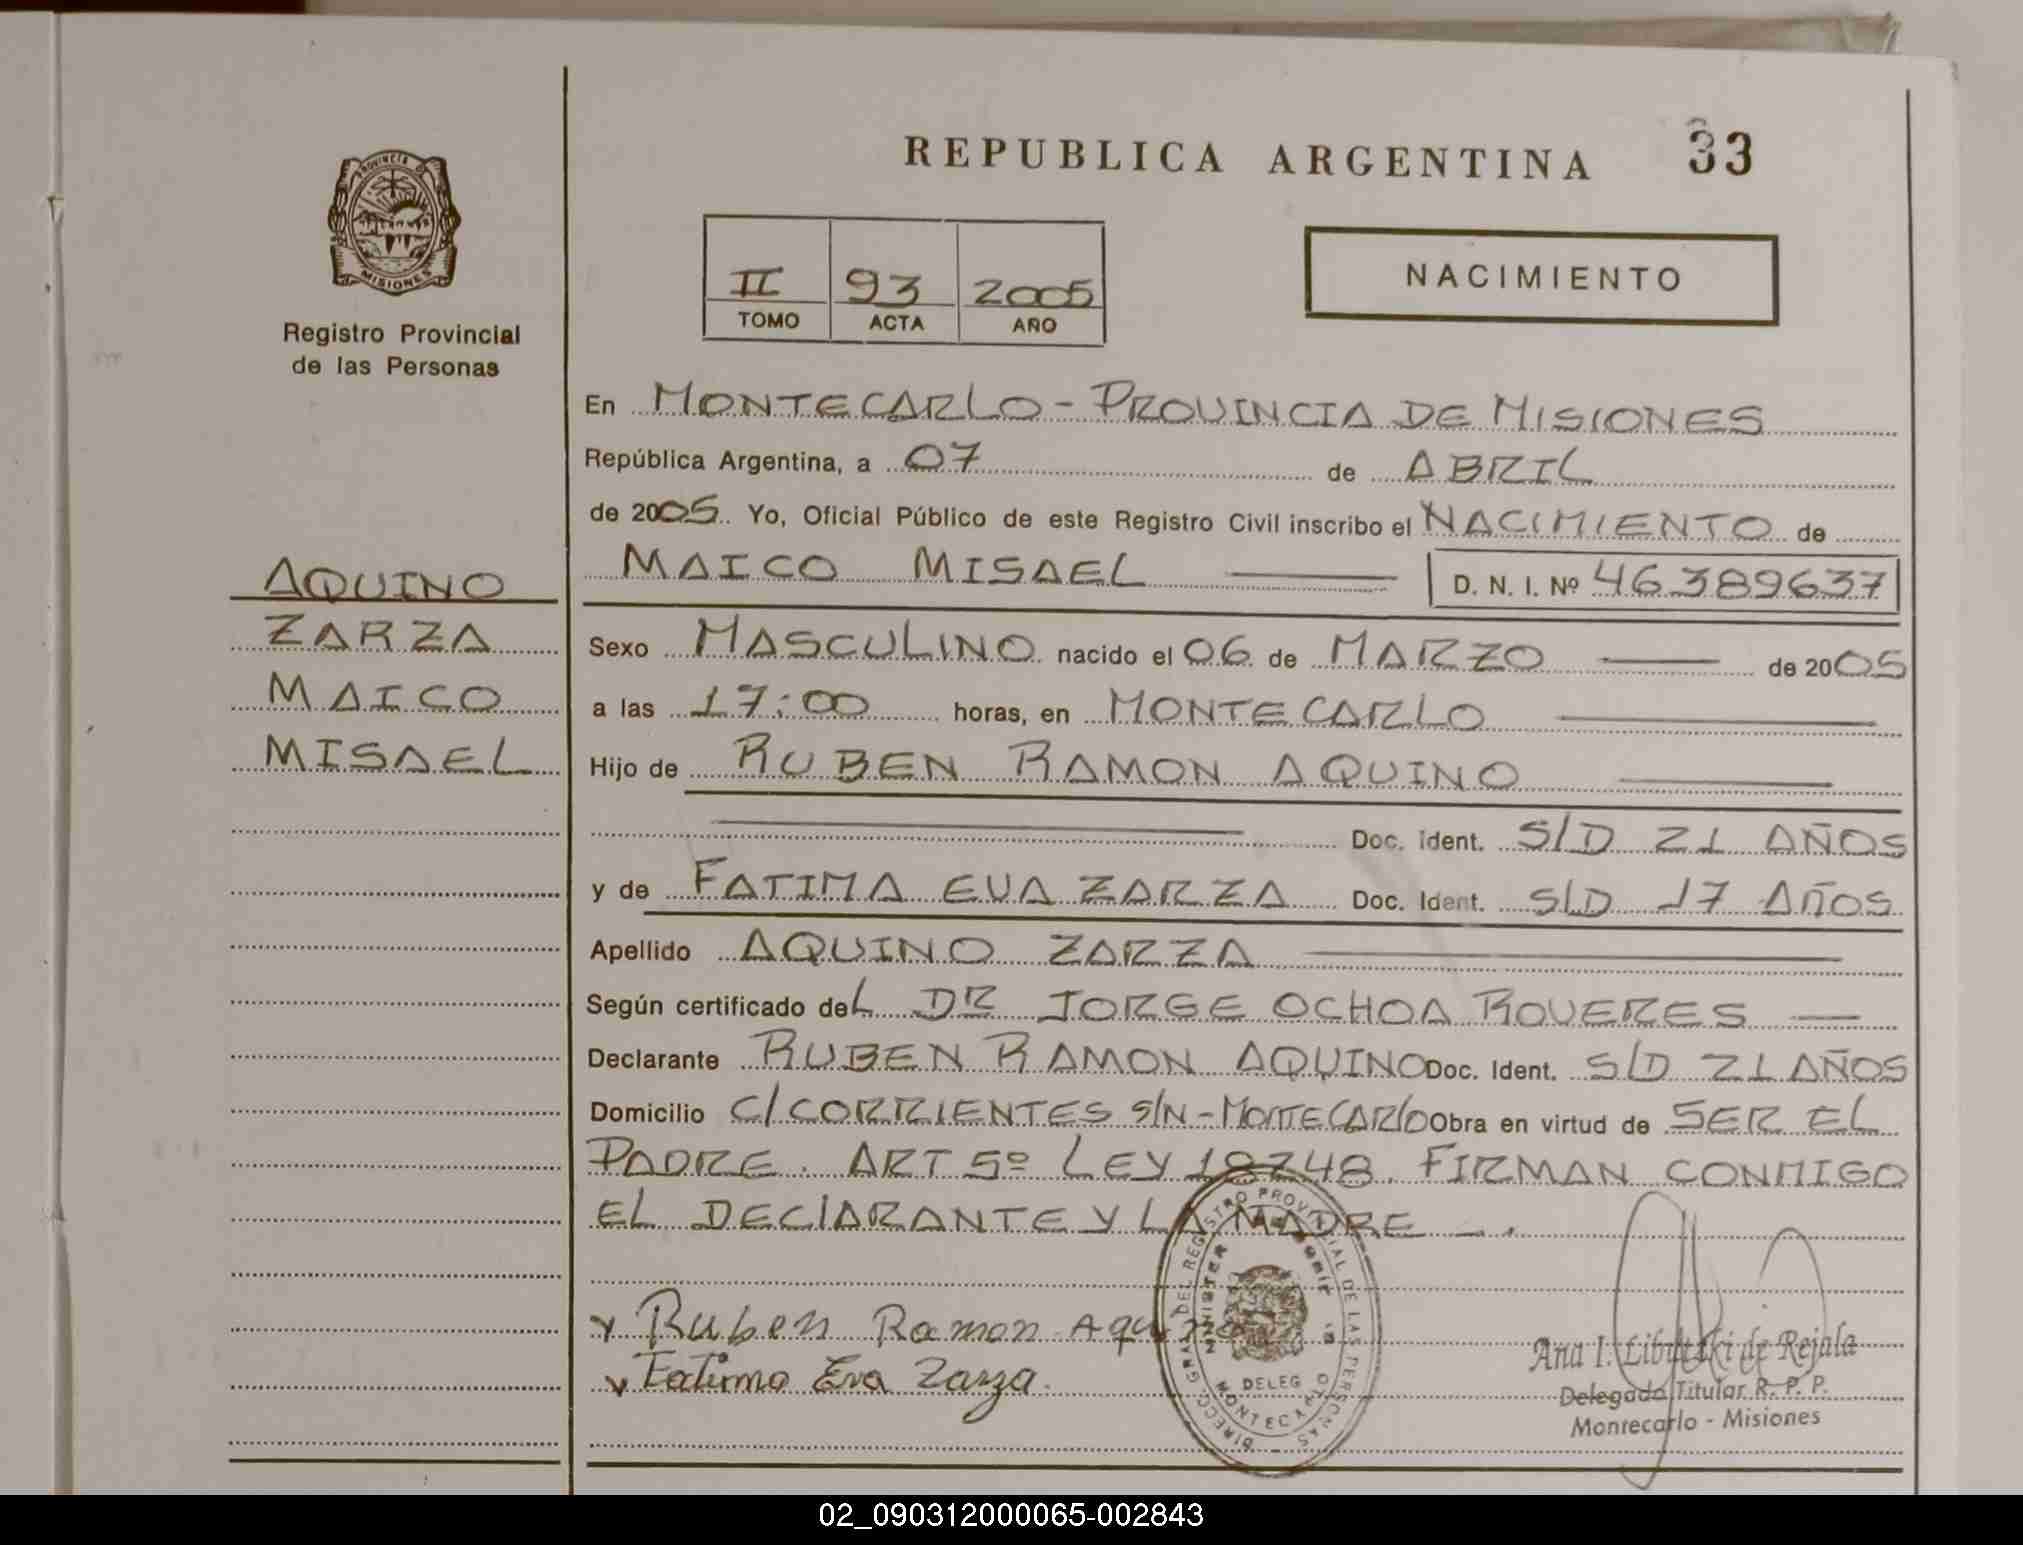 REPUBLICA ARGENTINA 33
PROVINCIA MISIONES
Registro Provincial
de las Personas
II 93 2005
TOMO ACTA AÑO
NACIMIENTO
En MONTECARLO - PROVINCIA DE MISIONES
República Argentina, a 07 de ABRIL
de 2005. Yo, Oficial Público de este Registro Civil inscribo el NACIMIENTO de
MAICO MISAEL D. N. I. Nº 46.389637
AQUINO
ZARZA
MAICO
MISAEL
Sexo MASCULINO nacido el 06 de MARZO de 2005
a las 17:00 horas, en MONTECARLO
Hijo de RUBEN RAMON AQUINO
Doc. Ident. S/D 21 AÑOS
y de FATIMA EVA ZARZA Doc. Ident. S/D 17 AÑOS
Apellido AQUINO ZARZA
Según certificado del DR JORGE OCHOA ROVERES
Declarante RUBEN RAMON AQUINO Doc. Ident. S/D 21 AÑOS
Domicilio C/CORRIENTES S/N - MONTECARLO Obra en virtud de SER EL
PADRE. ART 5º LEY 18248. FIRMAN CONMIGO
EL DECLARANTE Y LA MADRE
Ruben Ramon Aquino
Fatima Eva Zarza.
DIRECC. GRAL. DEL REGISTRO PROVINCIAL DE LAS PERSONAS
DELEG
MONTECARLO
Ana I. de Rejala
Delegado Titular R. P. P.
Montecarlo - Misiones
02_090312000065-002843